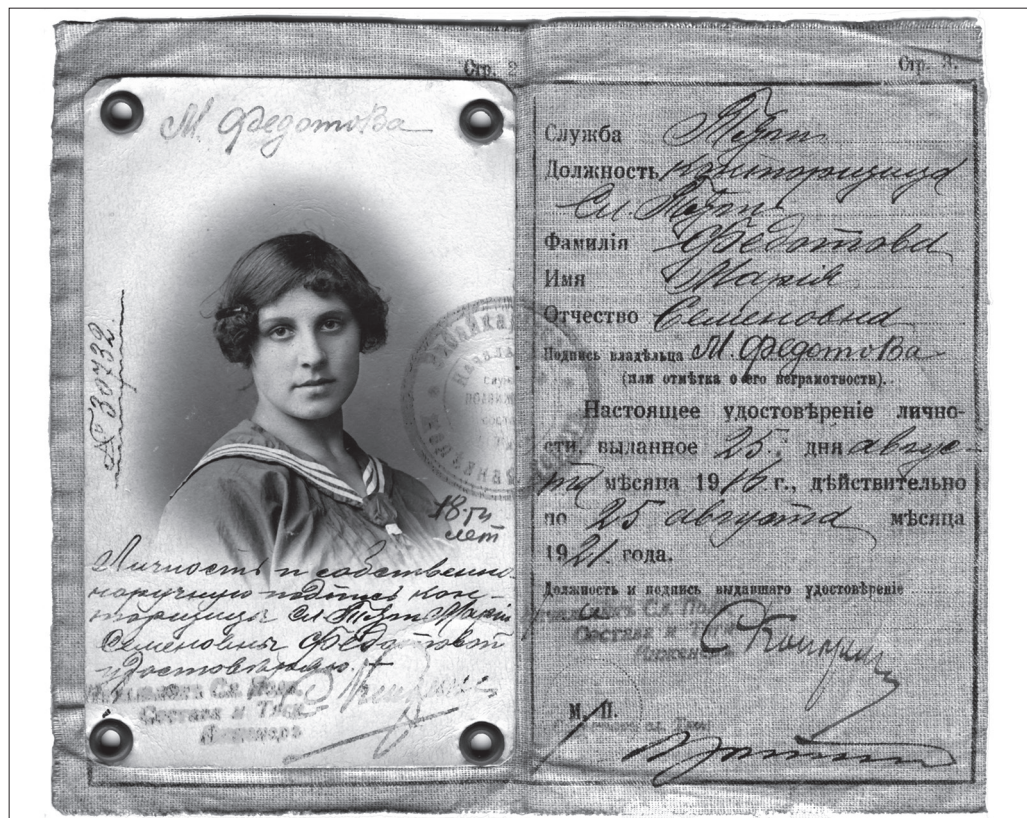 Стр. 2
М. Федотова
№ 30732.
18-ти
лет
Личность и собственно-
наручную подпись кон-
торщицы Сл. Тяги Маріи
Семеновны Федотовой
удостоверяю
Сл. Подв.
Состава и Тяги
Инженеръ
Стр. 3.
Служба Тяги
Должность конторщица
Сл. Тяги
Фамилія Федотова
Имя Марія
Отчество Семеновна
Подпись владѣльца М. Федотова
(или отмѣтка о его неграмотности).
Настоящее удостовѣреніе лично-
сти, выданное 25. дня авгус-
та мѣсяца 1916 г., дѣйствительно
по 25 августа мѣсяца
1921. года.
Должность и подпись выдавшаго удостовѣреніе
Сл. Под
Состава и Тяги
Инженеръ
М. П.